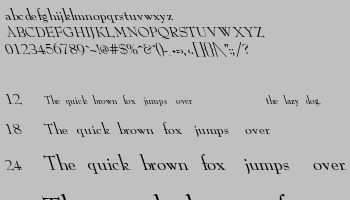 abcdefghijklmnopqrstuvwxyz
ABCDEFGHIJKLMNOPQRSTUVWXYZ
12 The quick brown fox jumps over the lazy dog.
18 The quick brown fox jumps over
24 The quick brown fox jumps over